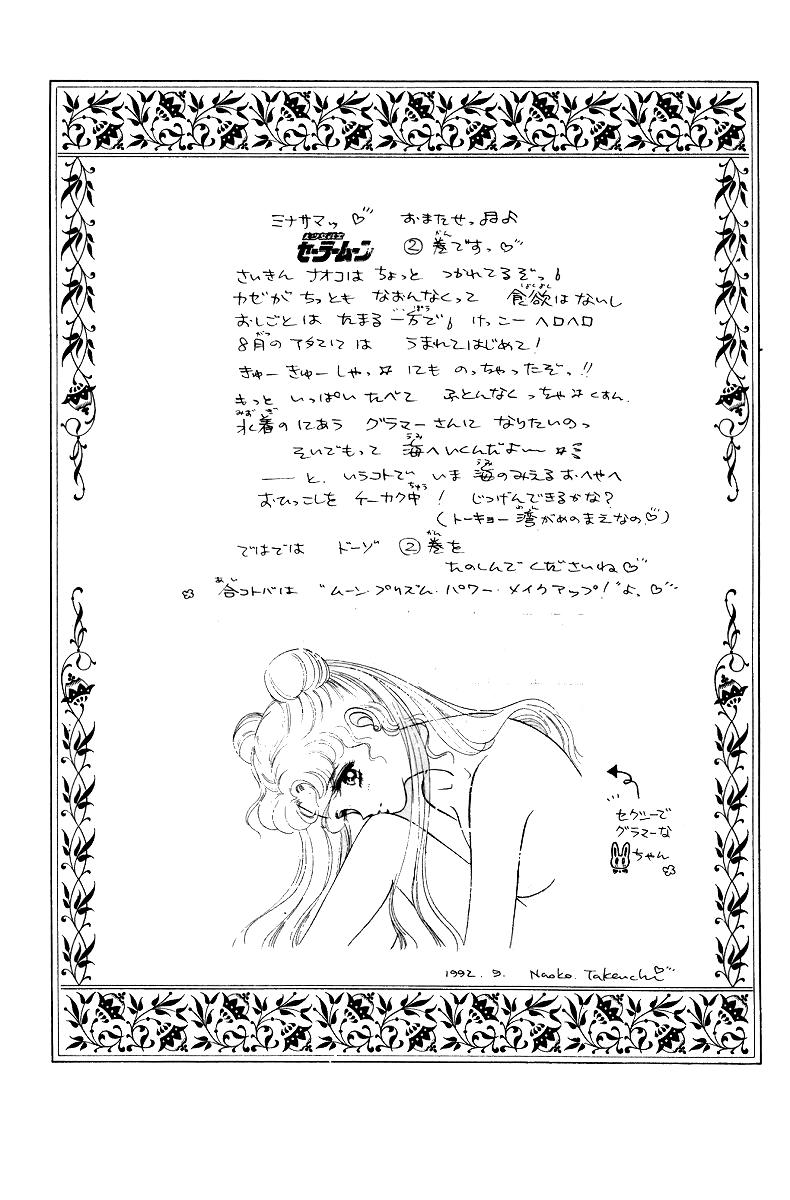 ミナサマッ♡ おまたせっ♬♪
美少女戦士
セーラームーン ②巻ですっ♡
さいきん ナオコは ちょっと つかれてるぞっ
カゼが ちっとも なおんなくって 食欲はないし
おしごとは たまる一方で けっこーヘロヘロ
8月のアタマには うまれてはじめて!
きゅーきゅーしゃっ☆にも のっちゃったぞっ!!
もっと いっぱい たべて ふとんなくっちゃ☆くすん
水着のにあう グラマーさんに なりたいのっ
そいでもって 海へいくんだよ〜☆
――と、いうコトで いま 海のみえるおへやへ
おひっこしを チーカク中! じつげんできるかな?
(トーキョー湾がめのまえなの♡)
ではでは ドーゾ ②巻を
たのしんでくださいね♡
合コトバは "ムーン・プリズム・パワー・メイクアップ!"よ、♡
セクシーで
グラマーな
ちゃん
1992. 9. Naoko. Takeuchi♡